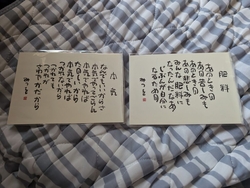 肥料
あのときの
あの苦しみも
あのときの
あの悲しみも
みんな肥料に
なったんだなあ
じぶんが自分に
なるための
みつを
本気
なんでもいいからさ
本気でやってごらん
本気でやれば
たのしいから
本気でやれば
つかれないから
つかれても
つかれが
さわやかだから
みつを